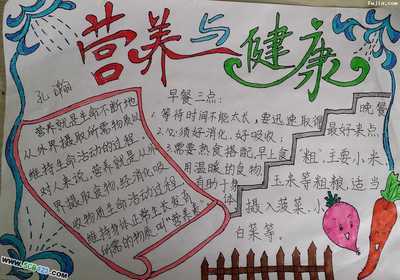 营养与健康
孔瀚
营养就是生命不断地
从外界摄取所需物质以
维持生命活动的过程,
对人来说,营养就是从外
界摄取食物,经消化吸
收物质生命活动的过程,
维持身体正常生长发育
所需的物质叫“营养素”
早餐三点:
1.等待时间不能太长,要迅速取得
2.必须好消化、好吸收;
3.需要热食搭配,早上食
用温暖的食物,
有助于身
体
晚餐
最好来点
“粗”,主要小米、
玉米等粗粮,适当
摄入菠菜、小
白菜等。